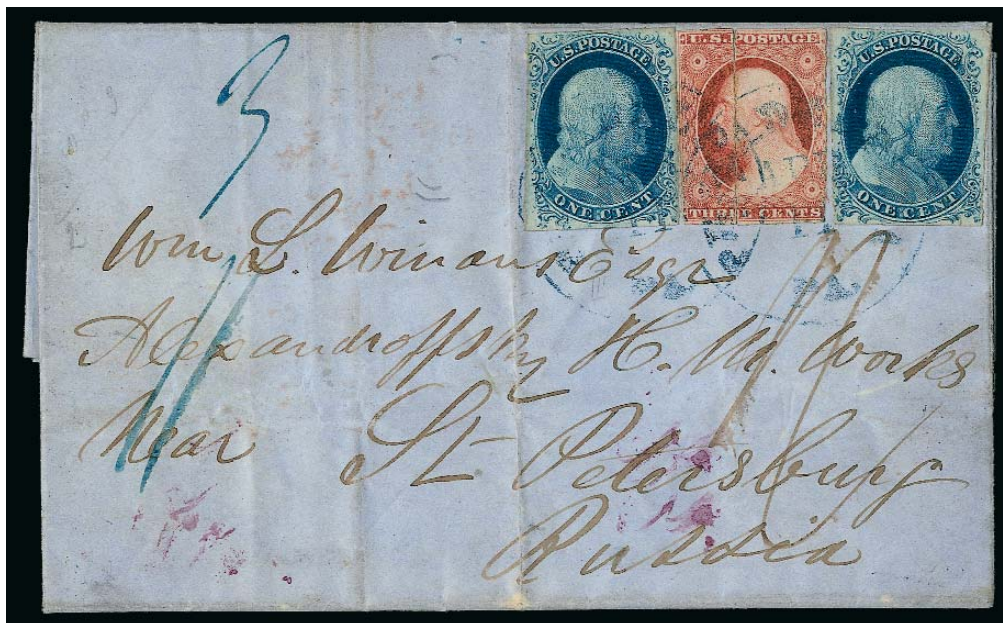 3
U.S. POSTAGE
ONE CENT
U.S. POSTAGE
THREE CENTS
U.S. POSTAGE
ONE CENT
Wm L. Winans Esqr
Alexandroffsky H. M. Works
Near St Petersburg
Russia